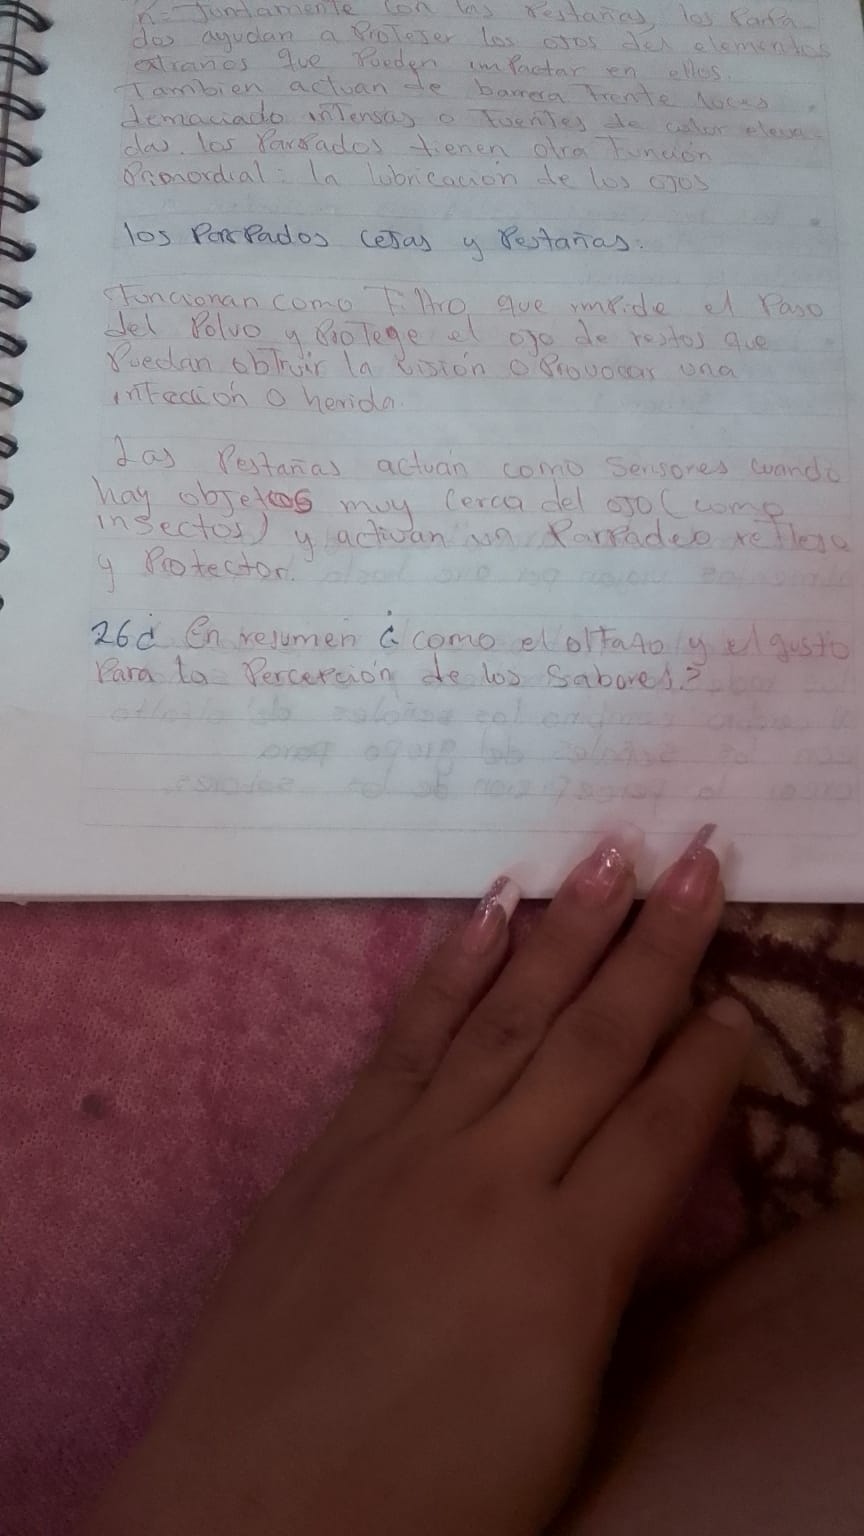 R= Juntamente con las Pestañas, los Parpa
dos ayudan a ProteJer los ojos del elementos
extraños que Pueden imPactar en ellos.
Tambien actuan de barrera Frente luces
demaciado inTensas o Fuentes de calor eleva
das. los ParPados tienen otra Función
Primordial: la lubricación de los OJOS
los ParPados CeJas y Pestañas.
Funcionan como Filtro que imPide el Paso
del Polvo y ProTege el ojo de restos que
Puedan obTruir la visión o Provocar una
inFección o herida.
Las Pestañas actuan como Sensores cuando
hay objetos muy Cerca del ojo (como
insectos) y activan un ParPadeo reFlejo
y Protector.
26¿ En resumen ¿ como el olFato y el gusto
Para la PercePción de los Sabores?